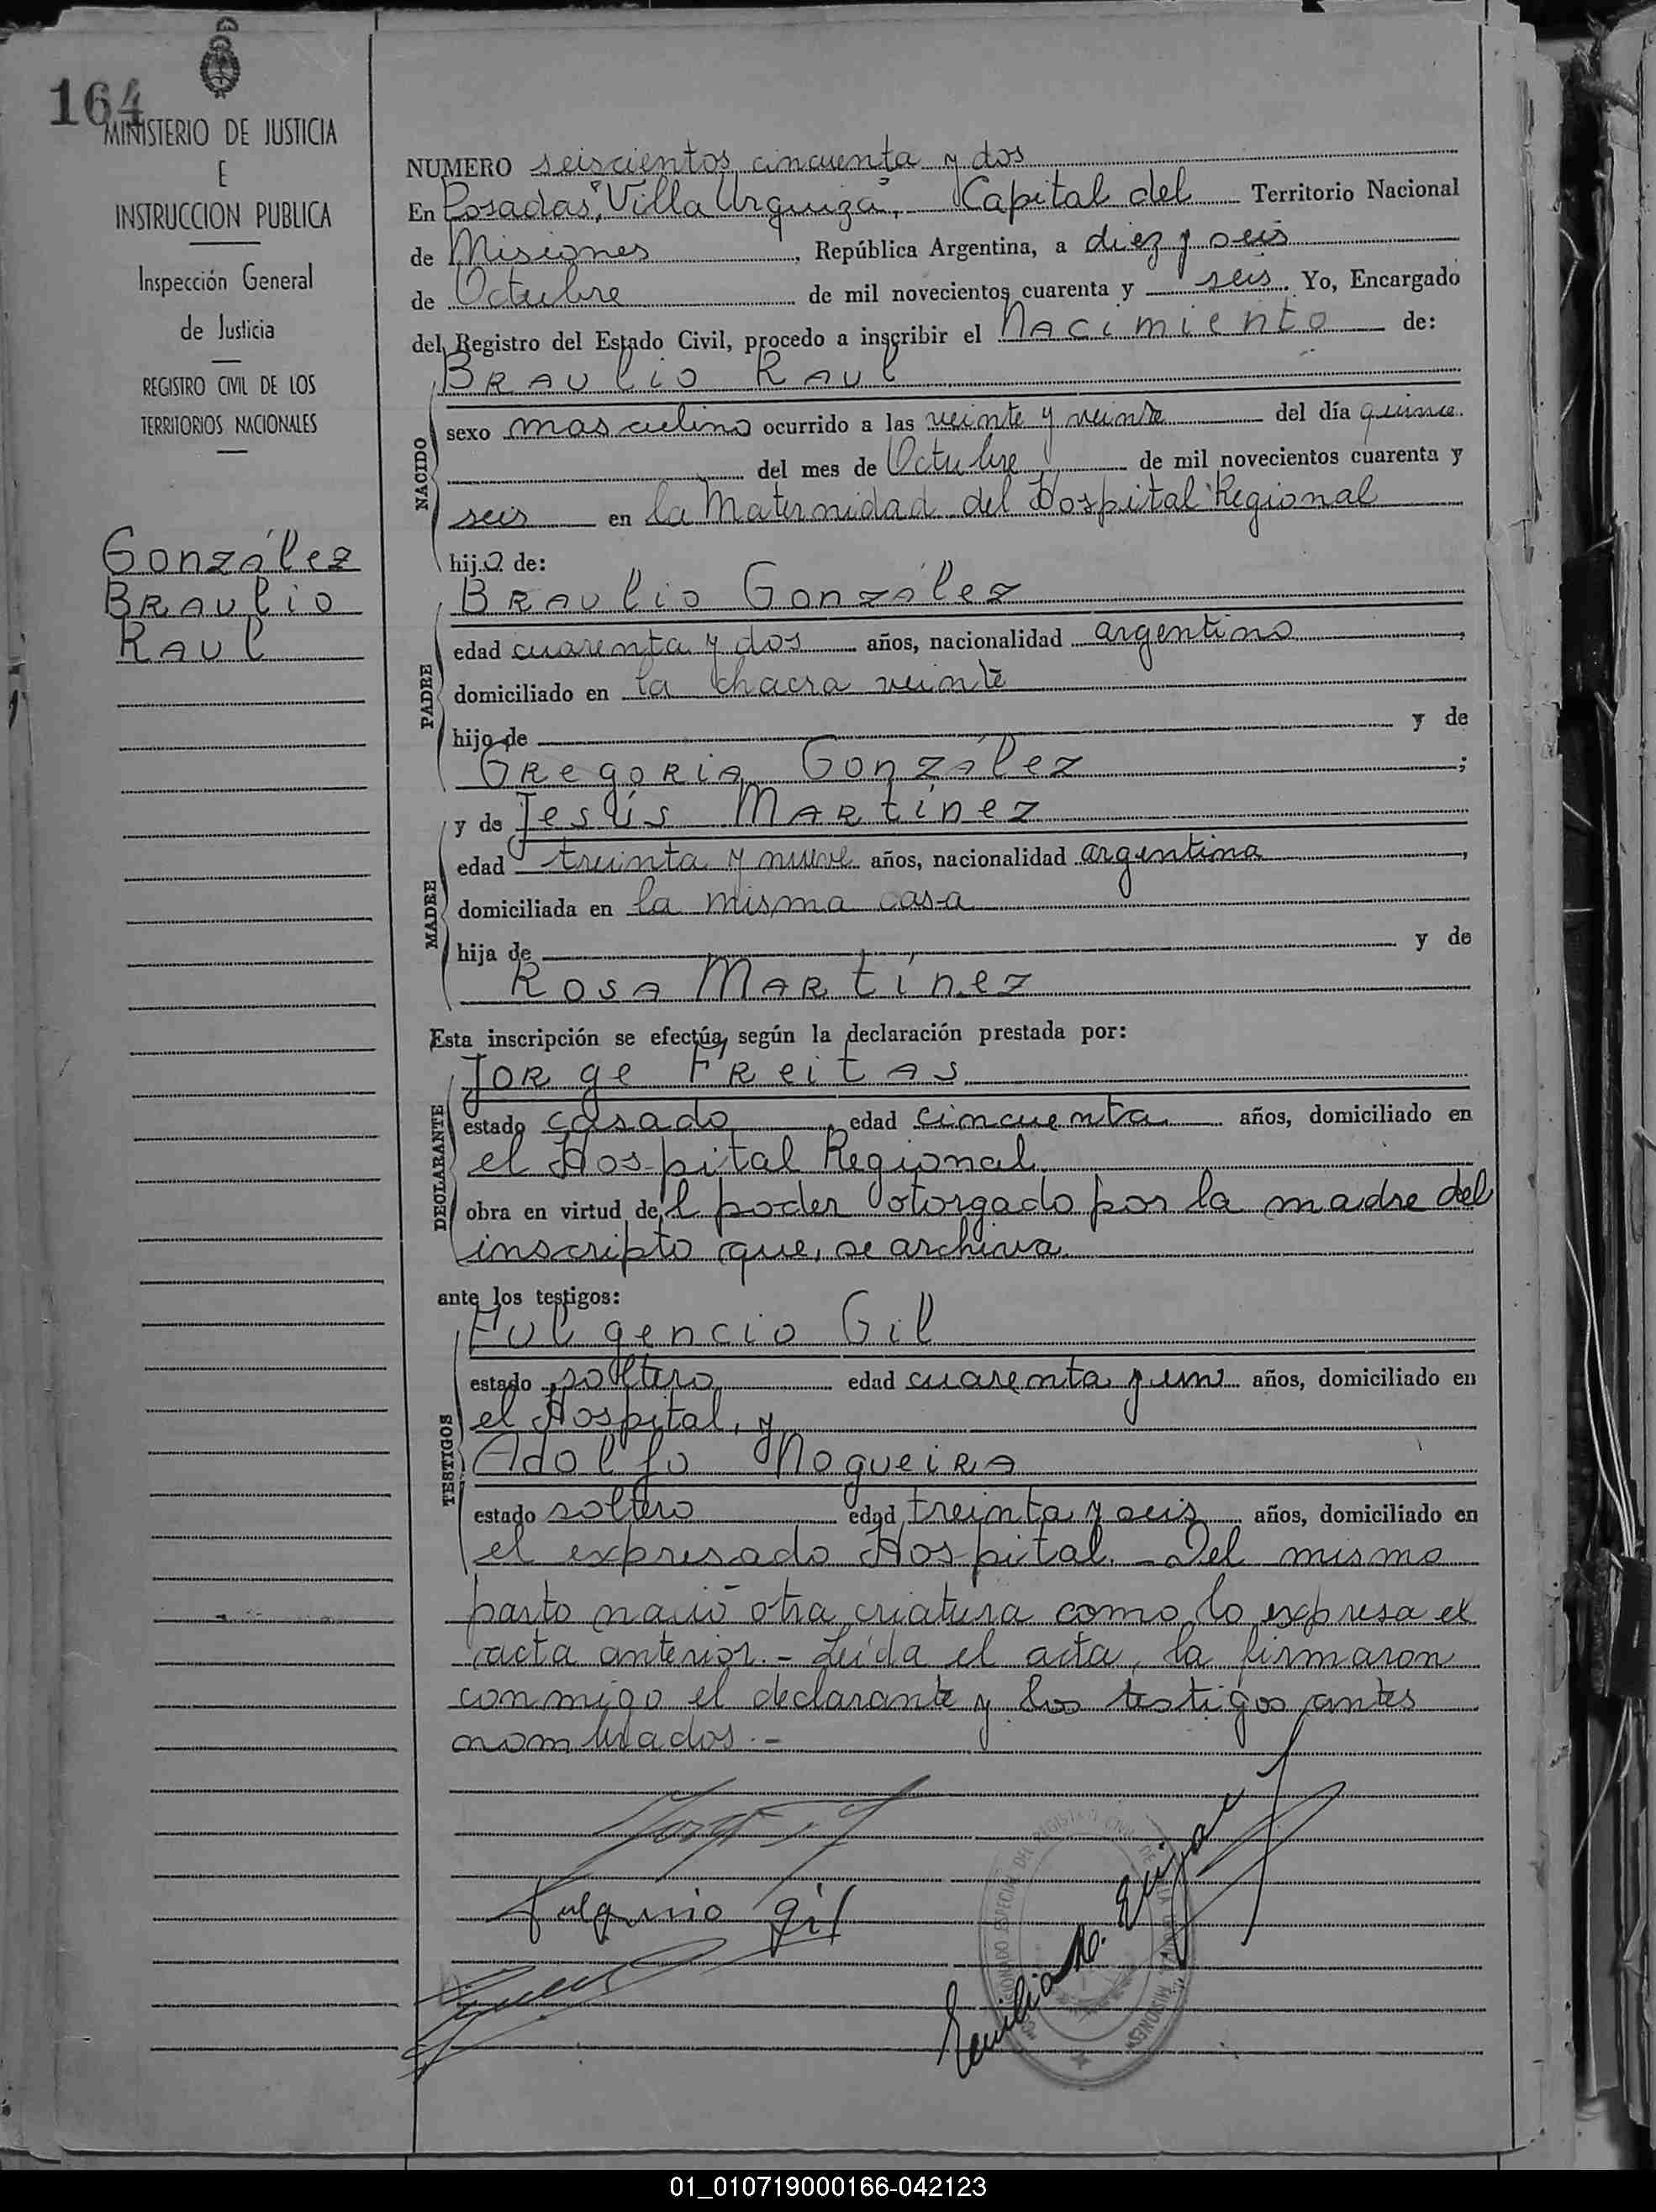 164
MINISTERIO DE JUSTICIA
E
INSTRUCCION PUBLICA
Inspección General
de Justicia
REGISTRO CIVIL DE LOS
TERRITORIOS NACIONALES
González
Braulio
Raul
NUMERO seiscientos cincuenta y dos
En Posadas, "Villa Urquiza", Capital del Territorio Nacional
de Misiones, República Argentina, a diez y seis
de Octubre de mil novecientos cuarenta y seis. Yo, Encargado
del Registro del Estado Civil, procedo a inscribir el Nacimiento de:
Braulio Raul
NACIDO
sexo masculino ocurrido a las veinte y veinte del día quince
del mes de Octubre de mil novecientos cuarenta y
seis en la Maternidad del Hospital Regional
hijo de:
Braulio González
PADRE
edad cuarenta y dos años, nacionalidad argentino,
domiciliado en la chacra veinte
hijo de y de
Gregoria González;
y de Jesús Martínez
MADRE
edad treinta y nueve años, nacionalidad argentina,
domiciliada en la misma casa
hija de y de
Rosa Martínez
Esta inscripción se efectúa, según la declaración prestada por:
Jorge Freitas
DECLARANTE
estado casado, edad cincuenta años, domiciliado en
el Hospital Regional.
obra en virtud del poder otorgado por la madre del
inscripto que, se archiva.
ante los testigos:
Fulgencio Gil
TESTIGOS
estado soltero edad cuarenta y un años, domiciliado en
el Hospital, y
Adolfo Nogueira
estado soltero edad treinta y seis años, domiciliado en
el expresado Hospital. - Del mismo
parto nació otra criatura como lo expresa el
acta anterior. - Leída el acta, la firmaron
conmigo el declarante y los testigos antes
nombrados. -
Fulgencio Gil
01_010719000166-042123